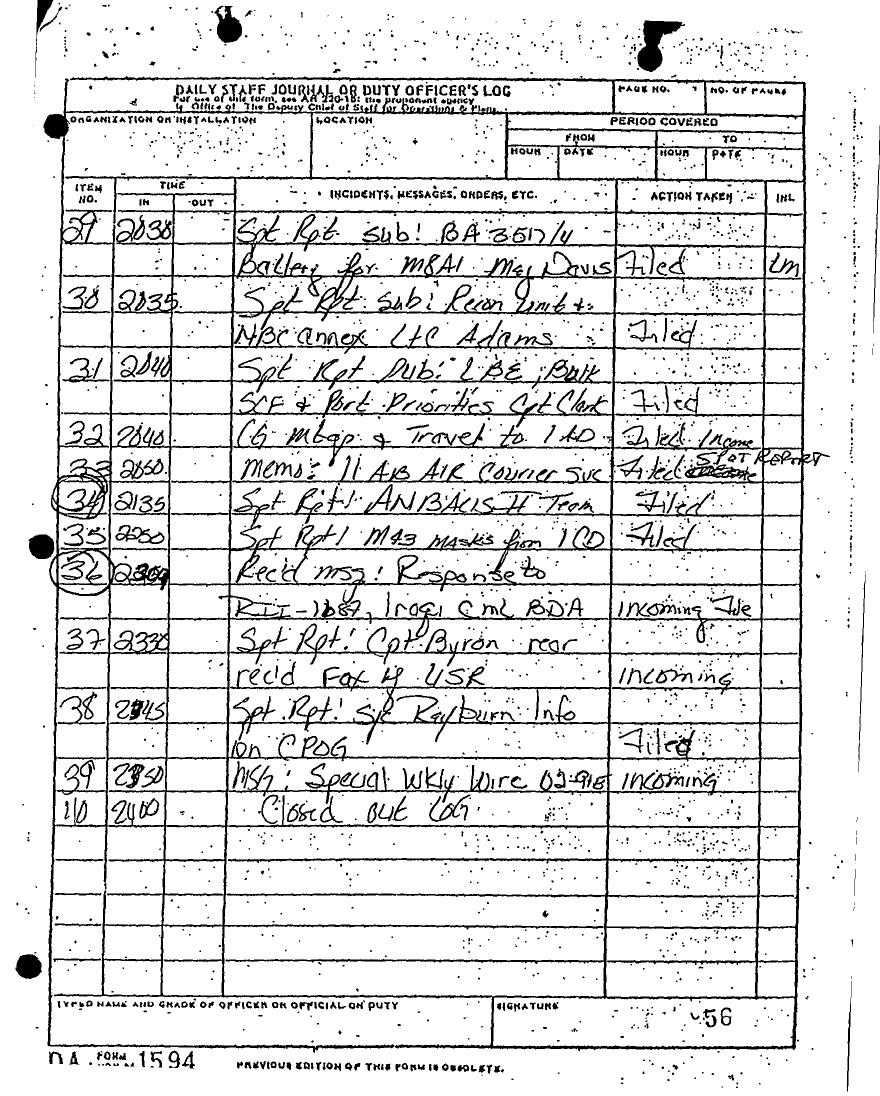 DAILY STAFF JOURNAL OR DUTY OFFICER'S LOG
For use of this form, see AR 220-15; the proponent agency
is Office of The Deputy Chief of Staff for Operations & Plans.
PAGE NO. NO. OF PAGES
ORGANIZATION OR INSTALLATION LOCATION PERIOD COVERED
FROM TO
HOUR DATE HOUR DATE
ITEM NO. TIME INCIDENTS, MESSAGES, ORDERS, ETC. ACTION TAKEN INL
IN OUT
29 2030 Spt Rpt sub: BA 3517/U
Battery for M8A1 Maj Davis Filed LM
30 2035 Spt Rpt sub: Recon Unit &
NBC annex LTC Adams Filed
31 2040 Spt Rpt Sub: LBE, Bulk
& Port Priorities Cpt Clark Filed
32 2040 CG & Travel to 1AD Filed Income
33 2050 Memo: 11 AIR Courier svc Filed SPOT REPORT
34 2135 Spt Rpt: Team Filed
35 2250 Spt Rpt! M43 masks from 1CD Filed
36 2309 Rec'd msg: Response to
RII-1687, Iraqi Cml BDA incoming File
37 2330 Spt Rpt: Cpt Byron rear
rec'd Fax of USR incoming
38 2345 Spt. Rpt! Rayburn Info
on CPOG Filed
39 2350 MSG: Special Wkly Wire 02-91E incoming
40 2400 Closed out LOG
TYPED NAME AND GRADE OF OFFICER OR OFFICIAL ON DUTY SIGNATURE 56
DA FORM 1594 PREVIOUS EDITION OF THIS FORM IS OBSOLETE.